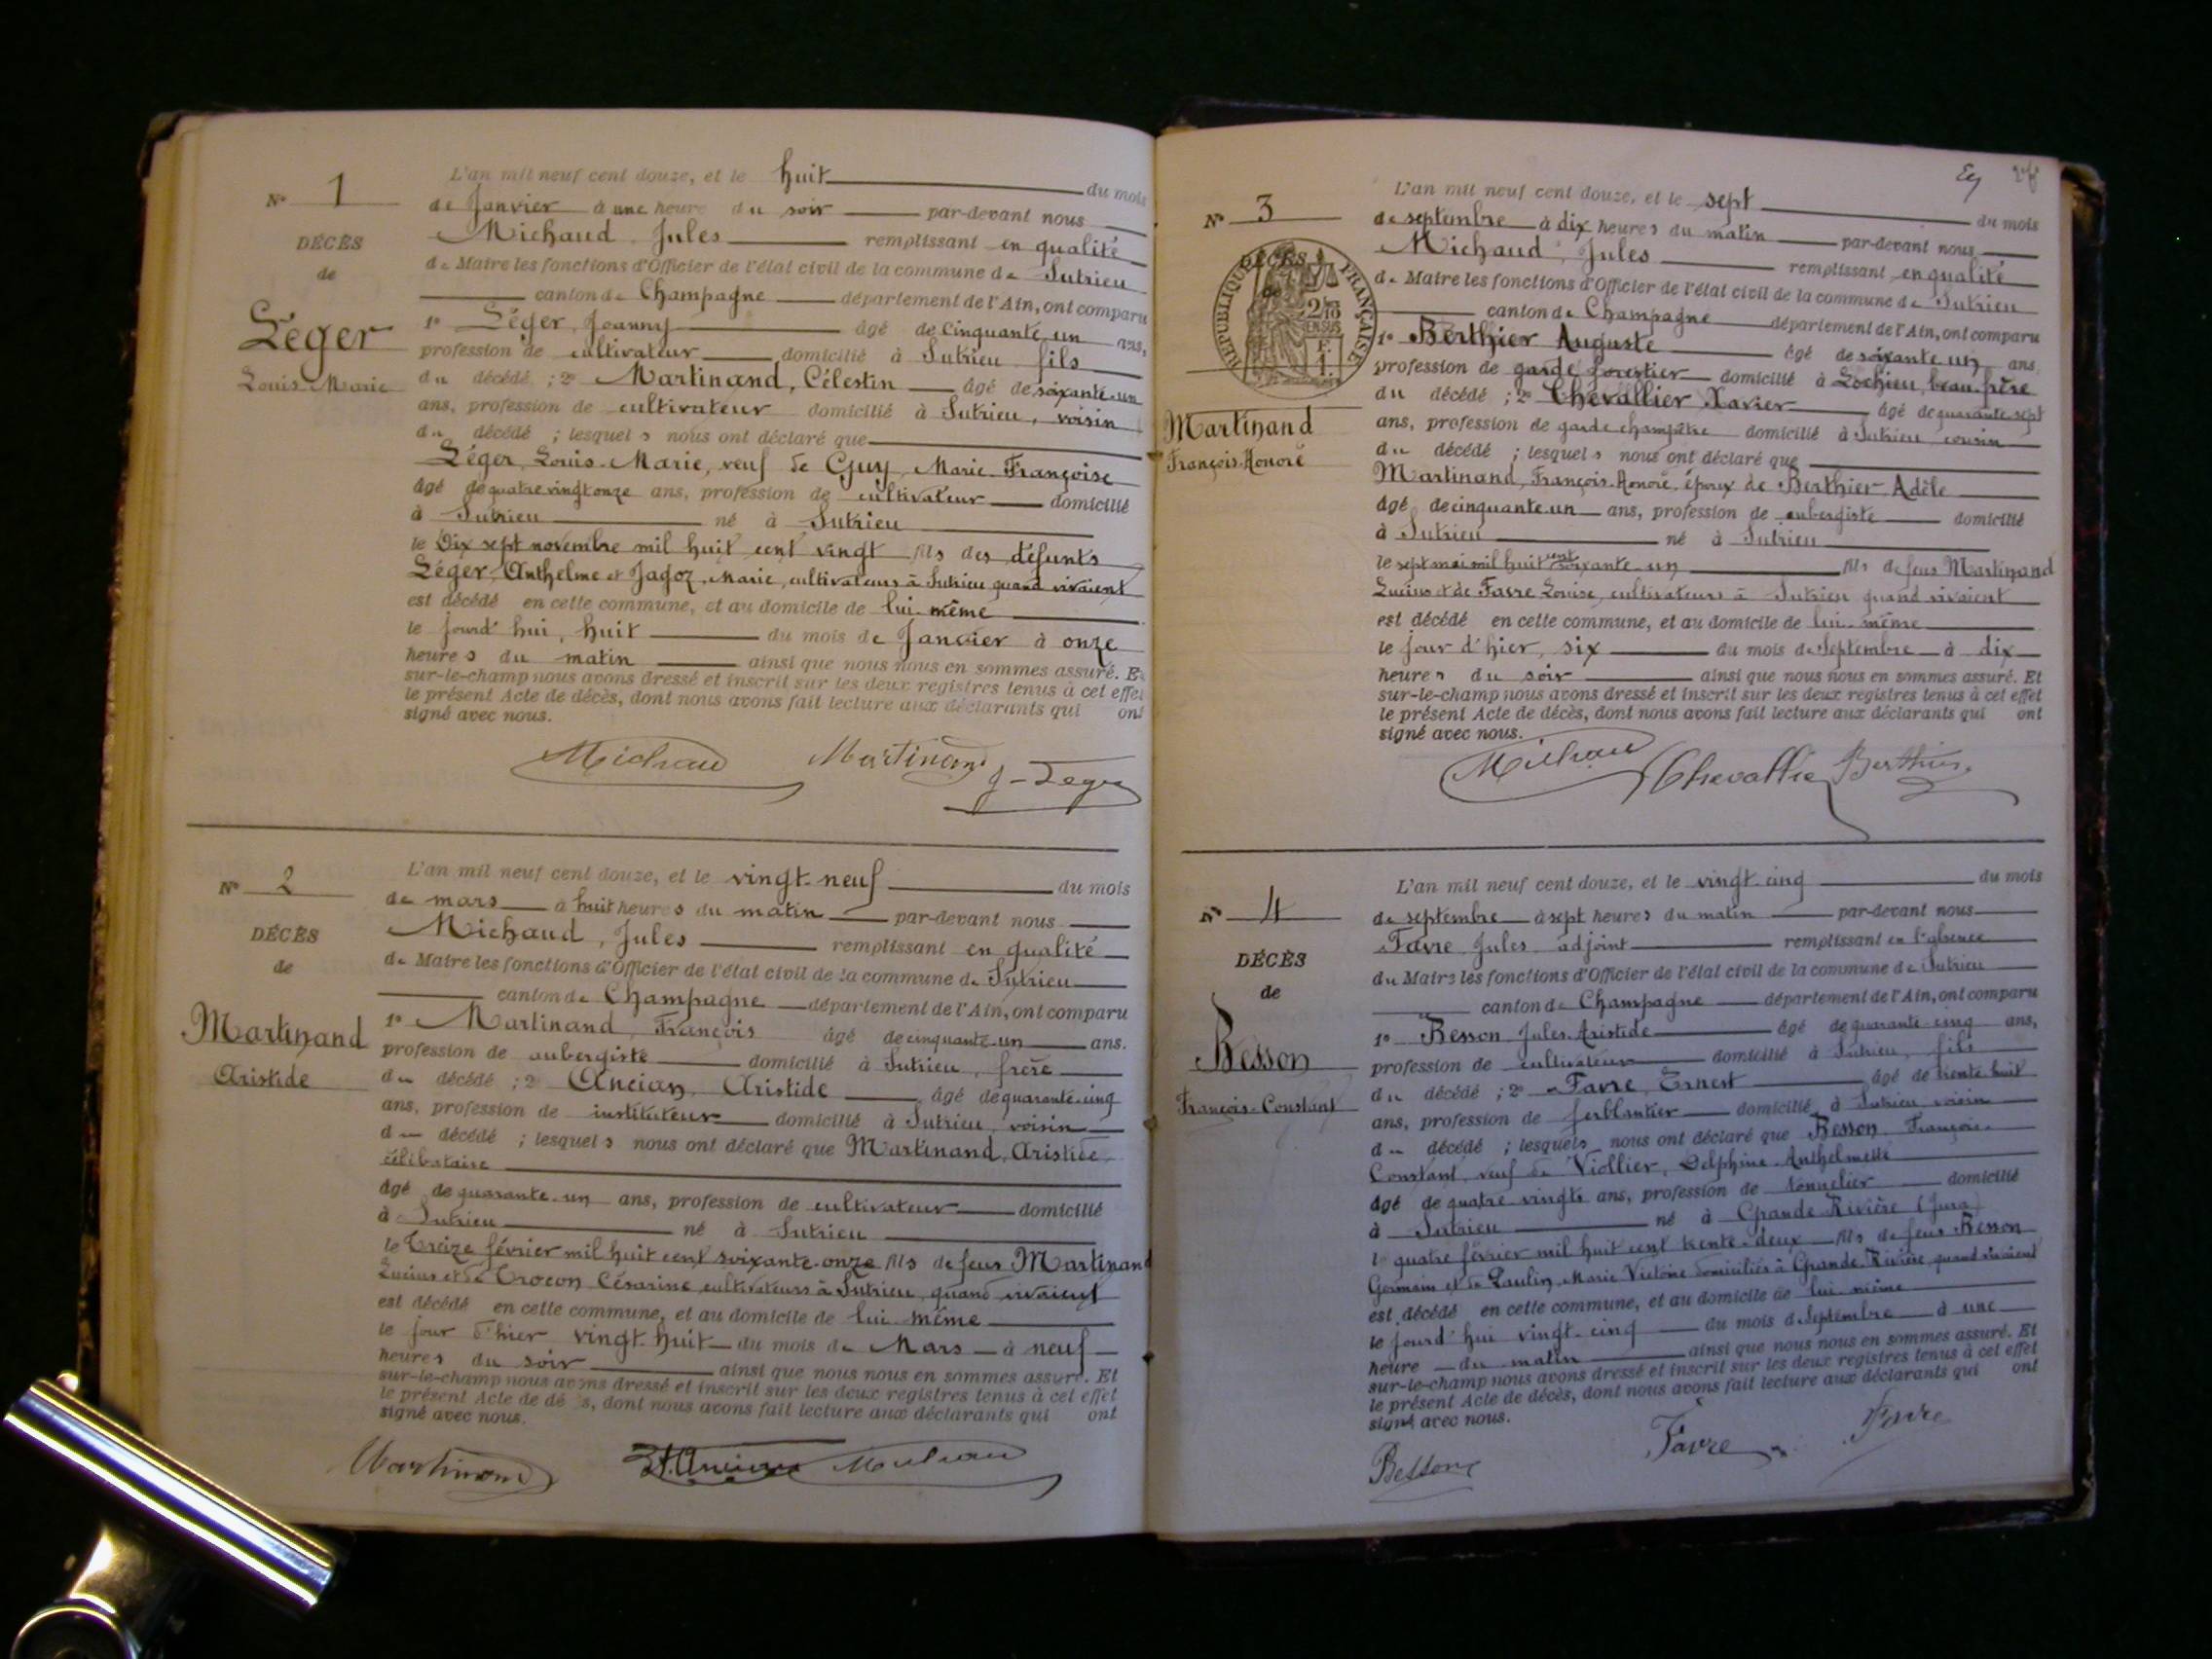 N° 1
DÉCÈS
de
Léger
Louis-Marie
L'an mil neuf cent douze, et le huit du mois
de Janvier à une heure du soir par-devant nous
Michaud, Jules remplissant en qualité
de Maire les fonctions d'Officier de l'état civil de la commune de Sutrieu
canton de Champagne département de l'Ain, ont comparu
1° Léger, Joanny âgé de cinquante-un ans,
profession de cultivateur domicilié à Sutrieu fils
du décédé ; 2° Martinand, Célestin âgé de soixante-un
ans, profession de cultivateur domicilié à Sutrieu, voisin
du décédé ; lesquels nous ont déclaré que
Léger, Louis-Marie, veuf de Guy, Marie-Françoise
âgé de quatre vingt onze ans, profession de cultivateur domicilié
à Sutrieu né à Sutrieu
le Dix sept novembre mil huit cent vingt fils des défunts
Léger, Anthelme et Jagoz, Marie, cultivateurs à Sutrieu quand vivaient
est décédé en cette commune, et au domicile de lui-même
le jourd'hui, huit du mois de Janvier à onze
heures du matin ainsi que nous nous en sommes assuré. Et
sur-le-champ nous avons dressé et inscrit sur les deux registres tenus à cet effet
le présent Acte de décès, dont nous avons fait lecture aux déclarants qui ont
signé avec nous.
Michaud Martinand J-Léger
N° 2
DÉCÈS
de
Martinand
Aristide
L'an mil neuf cent douze, et le vingt-neuf du mois
de mars à huit heures du matin par-devant nous
Michaud, Jules remplissant en qualité
de Maire les fonctions d'Officier de l'état civil de la commune de Sutrieu
canton de Champagne département de l'Ain, ont comparu
1° Martinand, François âgé de cinquante-un ans.
profession de aubergiste domicilié à Sutrieu, frère
du décédé ; 2° Ancian, Aristide âgé de quarante-cinq
ans, profession de instituteur domicilié à Sutrieu, voisin
du décédé ; lesquels nous ont déclaré que Martinand, Aristide
célibataire
âgé de quarante-un ans, profession de cultivateur domicilié
à Sutrieu né à Sutrieu
le Treize février mil huit cent soixante-onze fils de feus Martinand
Lucius et de Trocon Césarine, cultivateurs à Sutrieu, quand vivaient
est décédé en cette commune, et au domicile de lui-même
le jour d'hier vingt-huit du mois de Mars à neuf
heures du soir ainsi que nous nous en sommes assuré. Et
sur-le-champ nous avons dressé et inscrit sur les deux registres tenus à cet effet
le présent Acte de décès, dont nous avons fait lecture aux déclarants qui ont
signé avec nous.
Martinand Ancian Michaud
N° 3
RÉPUBLIQUE FRANÇAISE
DÉCÈS
de
Martinand
François-Honoré
L'an mil neuf cent douze, et le sept du mois
de septembre à dix heures du matin par-devant nous
Michaud, Jules remplissant en qualité
de Maire les fonctions d'Officier de l'état civil de la commune de Sutrieu
canton de Champagne département de l'Ain, ont comparu
1° Berthier Auguste âgé de soixante un ans
profession de garde forestier domicilié à Lochieu, beau-frère
du décédé ; 2° Chevallier Xavier âgé de quarante-sept
ans, profession de garde champêtre domicilié à Sutrieu cousin
du décédé ; lesquels nous ont déclaré que
Martinand, François-Honoré, époux de Berthier, Adèle
âgé de cinquante-un ans, profession de aubergiste domicilié
à Sutrieu né à Sutrieu
le sept mai mil huit cent soixante-un fils de feus Martinand
Lucius et de Favre Louise, cultivateurs à Sutrieu quand vivaient
est décédé en cette commune, et au domicile de lui-même
le jour d'hier, six du mois de septembre à dix
heures du soir ainsi que nous nous en sommes assuré. Et
sur-le-champ nous avons dressé et inscrit sur les deux registres tenus à cet effet
le présent Acte de décès, dont nous avons fait lecture aux déclarants qui ont
signé avec nous.
Michaud Chevallier Berthier
N° 4
DÉCÈS
de
Besson
François-Constant
L'an mil neuf cent douze, et le vingt-cinq du mois
de septembre à sept heures du matin par-devant nous
Favre Jules adjoint remplissant en l'absence
du Maire les fonctions d'Officier de l'état civil de la commune de Sutrieu
canton de Champagne département de l'Ain, ont comparu
1° Besson Jules Aristide âgé de quarante-cinq ans,
profession de cultivateur domicilié à Sutrieu, fils
du décédé ; 2° Favre, Ernest âgé de trente huit
ans, profession de ferblantier domicilié à Sutrieu voisin
du décédé ; lesquels nous ont déclaré que Besson François-
Constant, veuf de Viollier, Delphine-Anthelmette
âgé de quatre vingts ans, profession de tonnelier domicilié
à Sutrieu né à Grande-Rivière (Jura)
le quatre février mil huit cent trente-deux fils de feus Besson
Germain et de Paulin, Marie Victoire domiciliés à Grande-Rivière, quand vivaient
est décédé en cette commune, et au domicile de lui-même
le jourd'hui vingt-cinq du mois de septembre à une
heure du matin ainsi que nous nous en sommes assuré. Et
sur-le-champ nous avons dressé et inscrit sur les deux registres tenus à cet effet
le présent Acte de décès, dont nous avons fait lecture aux déclarants qui ont
signé avec nous.
Besson Favre Favre